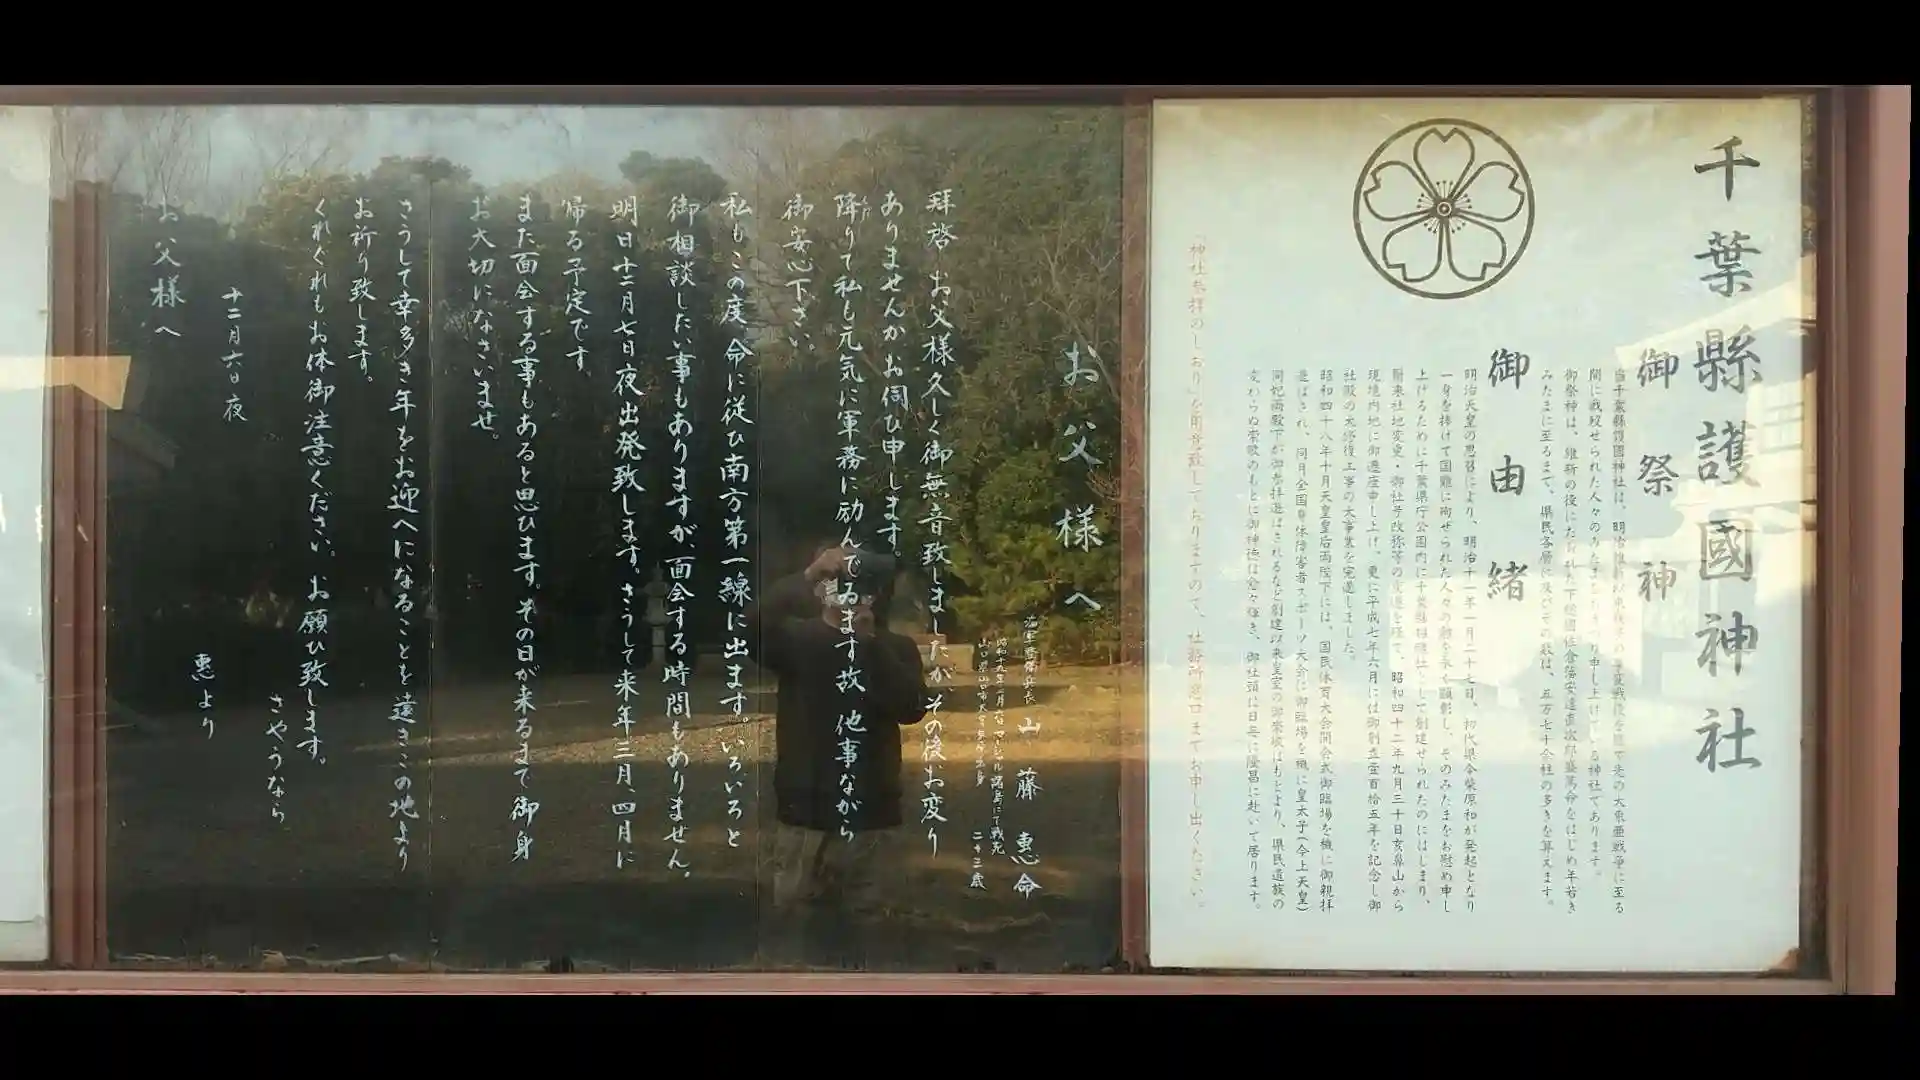 千葉縣護國神社
御祭神
当千葉縣護國神社は、明治維新以来
間に戦歿せられた人々のみたまをおまつり申し上げている神社であります。
御祭神は、維新の役にたおれた下總國佐倉藩安達直次郎盛篤命をはじめ年若き
みたまに至るまで、県民各層に及びその数は、五万七千余柱の多きを算えます。
御由緒
明治天皇の思召により、明治十一年一月二十七日、初代県令柴原和が発起となり
一身を捧げて国難に殉せられた人々の勲を永く顕彰し、そのみたまをお慰め申し
上げるために千葉県庁公園内に千葉縣招魂社として創建せられたのにはじまり、
爾来社地変更・御社号改称等の変遷を経て、昭和四十二年九月三十日亥鼻山から
現境内地に御遷座申し上げ、更に平成七年六月には御創立壹百拾五年を記念し御
社殿の大修復工事の大事業を完遂しました。
昭和四十八年十月天皇皇后両陛下には、国民体育大会開会式御臨場を機に御親拝
遊ばされ、同月全国身体障害者スポーツ大会に御臨場を機に皇太子(今上天皇)
同妃両殿下が御参拝遊ばされるなど創建以来皇室の御崇敬はもとより、県民遺族の
変わらぬ崇敬のもとに御神徳は愈々輝き、御社頭は日毎に隆昌に赴いて居ります。
「神社参拝のしおり」を用意致しておりますので、社務所窓口までお申し出ください。
お父様へ
海軍整備兵長 山藤惠命
昭和十九年二月六日マーシャル諸島にて戦死
山口県山口市大字 二十三歳
拝啓 お父様久しく御無音致しましたが、その後お変り
ありませんかお伺ひ申します。
降りて私も元気に軍務に励んでゐます故、他事ながら
御安心下さい。
私もこの度、命に従ひ南方第一線に出ます。いろいろと
御相談したい事もありますが面会する時間もありません。
明日十二月七日夜出発致します。さうして来年三月、四月に
帰る予定です。
また面会する事もあると思ひます。その日が来るまで御身
お大切になさいませ。
さうして幸多き年をお迎へになることを遠きこの地より
お祈り致します。
くれぐれもお体御注意ください。お願ひ致します。
さやうなら
十二月六日夜
惠より
お父様へ